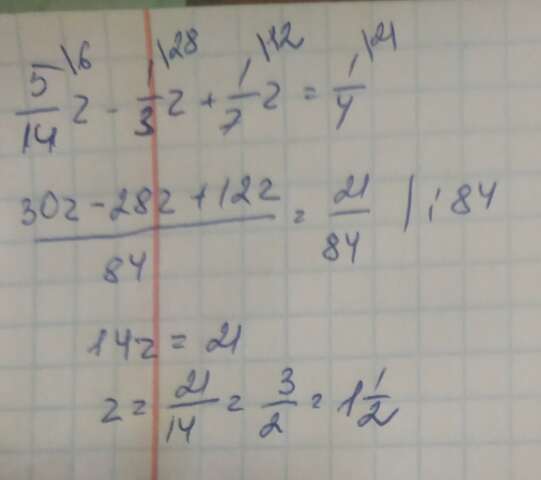 5/14 \6 z - 1/3 \28 z + 1/7 \12 z = 1/4 \21
(30z - 28z + 12z)/84 = 21/84 | : 84
14z = 21
z = 21/14 = 3/2 = 1 1/2